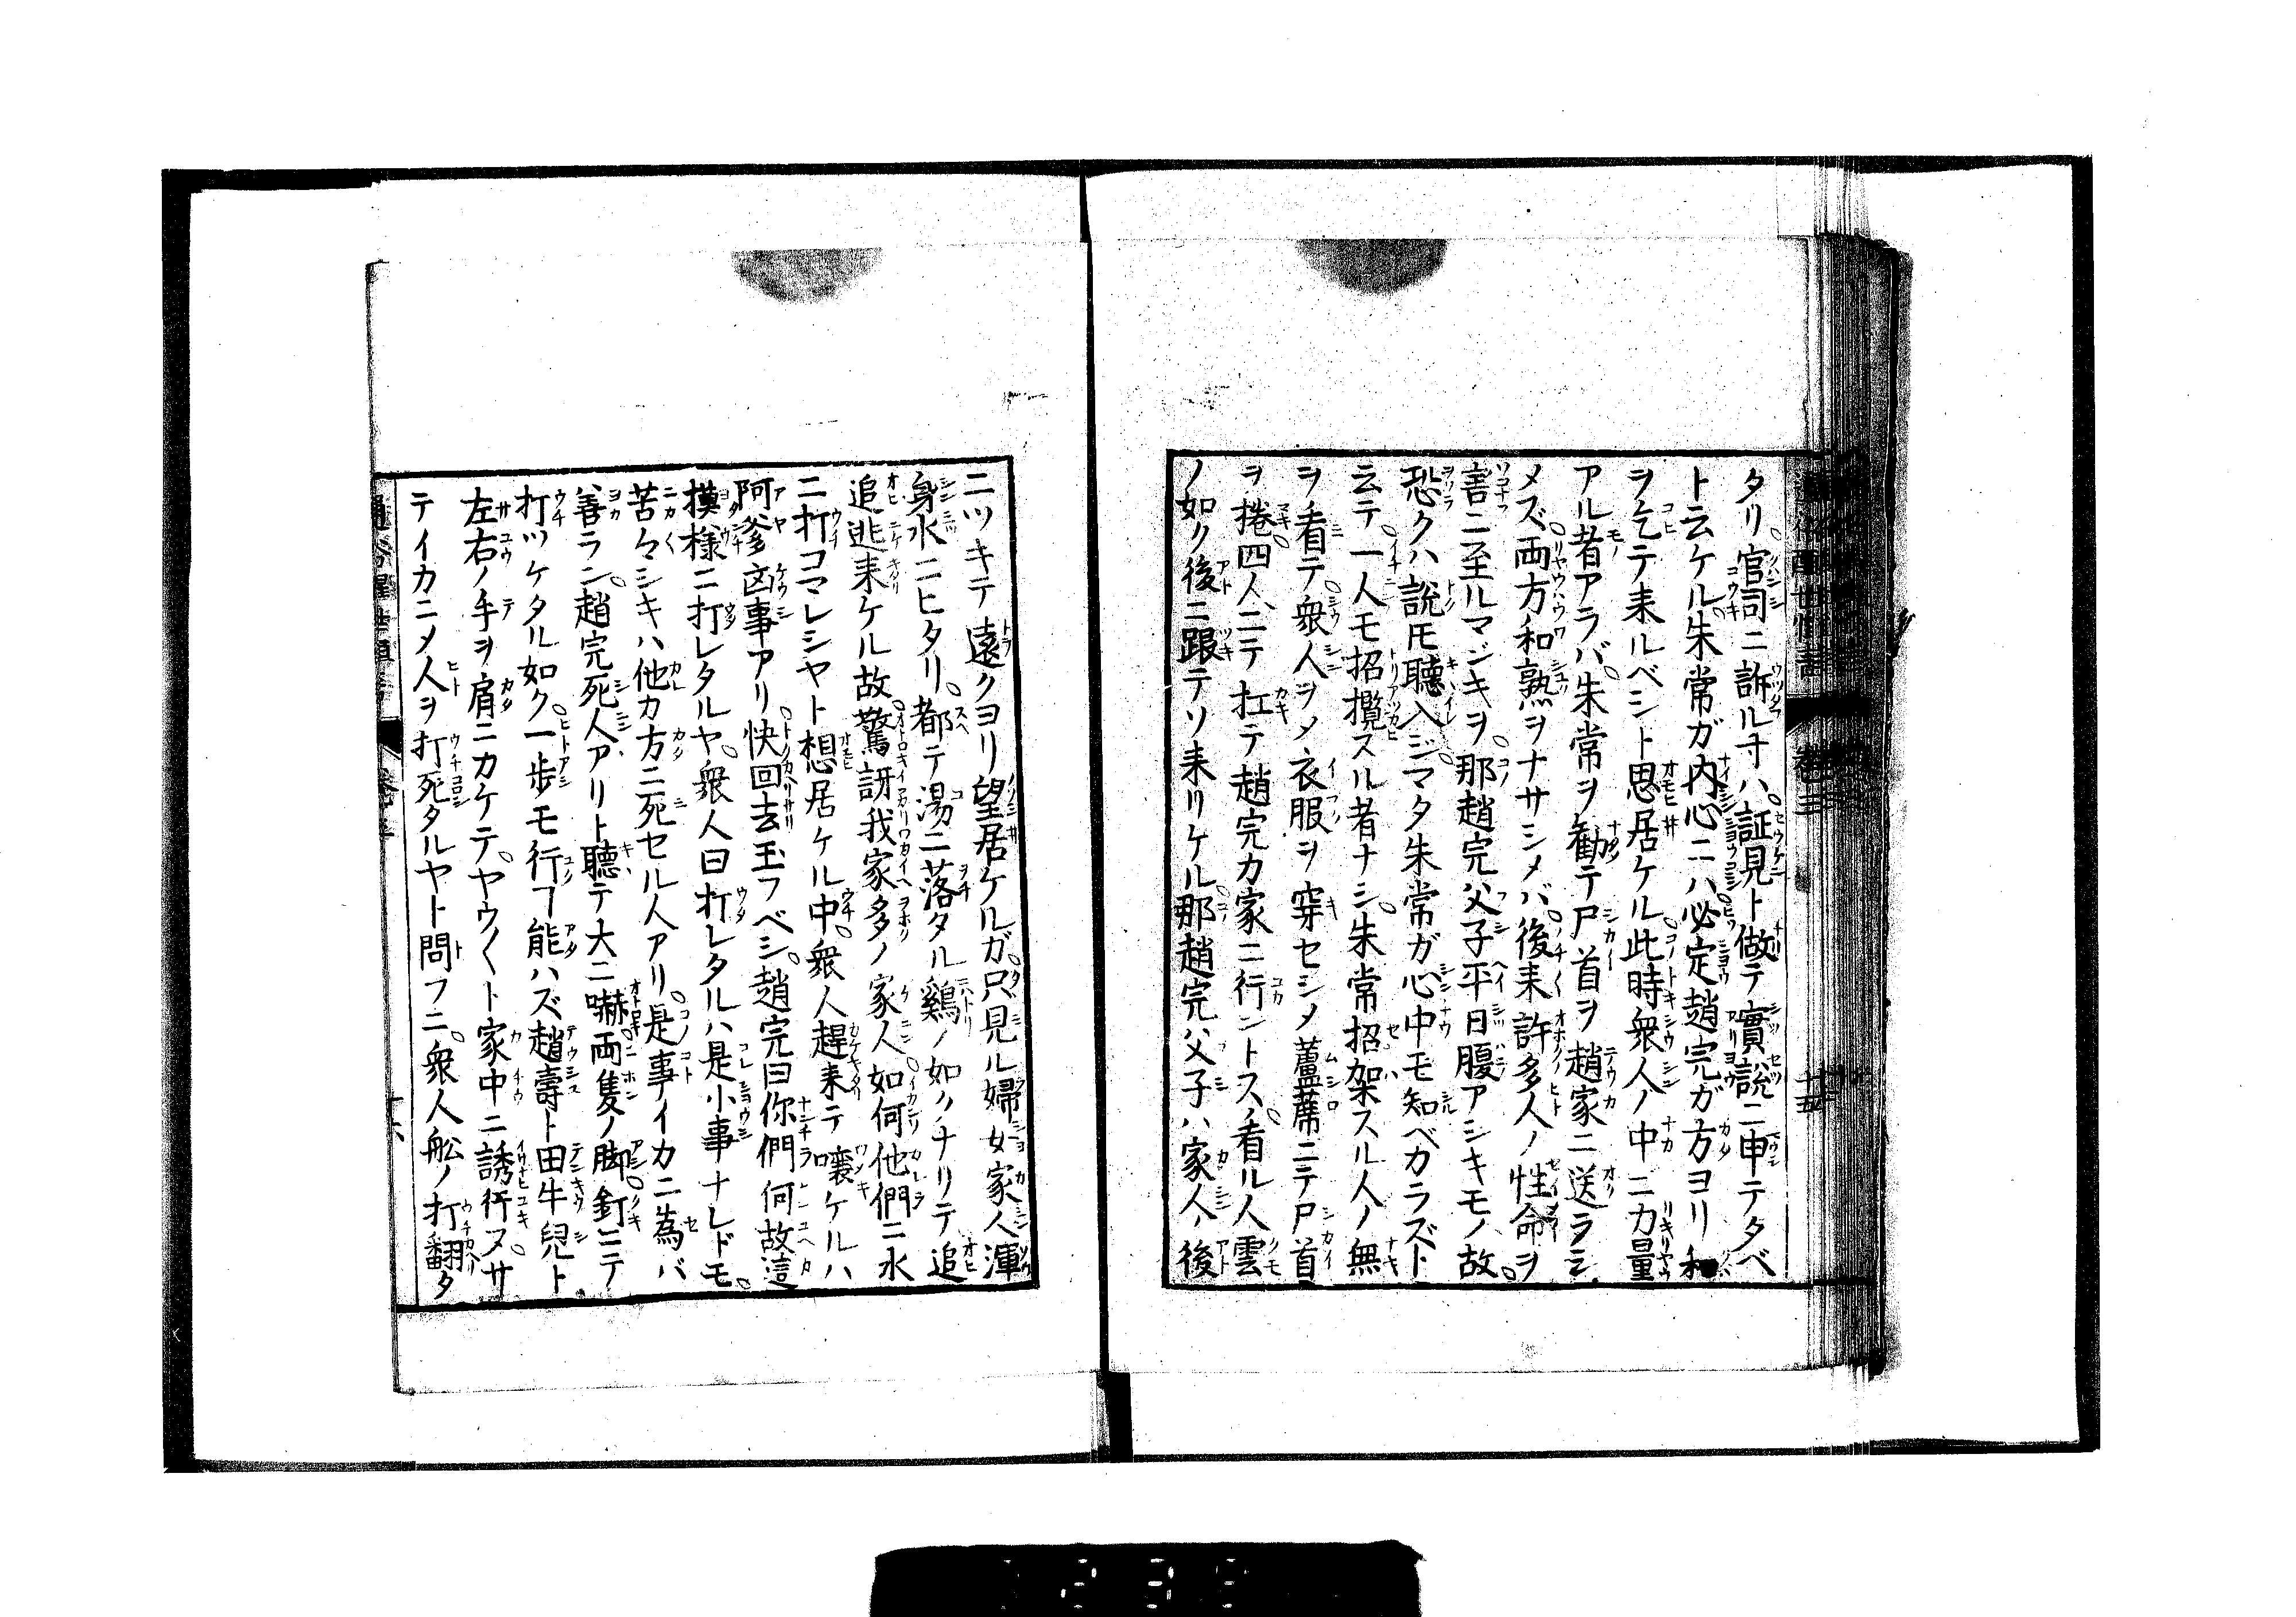 タリ官司ニ訴ル寸ハ証見ト做テ實説ニ申テタベ
ト云ケル朱常ガ内心ニハ必定趙完ガ方ヨリ和
ヲ乞テ来ルベシト思居ケル此時衆人ノ中ニ力量
アル者アラバ朱常ヲ勸テ尸首ヲ趙家ニ送ラシ
メズ両方和熟ヲナサシメバ後来許多人ノ性命ヲ
害ニ至ルマジキヲ那趙完父子平日腹アシキモノ故
恐クハ説𪜈聽入ジマタ朱常ガ心中モ知ベカラズト
云テ一人モ招攬スル者ナシ朱常招架スル人ノ無
ヲ看テ衆人ヲメ衣服ヲ穿セシメ蘆蓆ニテ尸首
ヲ捲四人ニテ扛テ趙完カ家ニ行ントス看ル人雲
ノ如ク後ニ跟テソ来リケル那趙完父子ハ家人ノ後
ニツキテ遠クヨリ望居ケルガ只見ル婦女家人渾
身水ニヒタリ都テ湯ニ落タル鷄ノ如クナリテ追
追逃来ケル故驚訝我家多ノ家人如何他們ニ水
ニ打コマレシヤト想居ケル中衆人趕来テ嚷ケルハ
阿爹凶事アリ快回去玉フベシ趙完曰你們何故這
模様ニ打レタルヤ衆人曰打レタルハ是小事ナレドモ
苦々シキハ他カ方ニ死セル人アリ是事イカニ為バ
善ラン趙完死人アリト聽テ大ニ嚇両隻ノ脚釘ニテ
打ツケタル如ク一歩モ行フ能ハズ趙壽ト田牛兒ト
左右ノ手ヲ肩ニカケテヤウ〱ト家中ニ誘行ヌサ
テイカニメ人ヲ打死タルヤト問フニ衆人舩ノ打翻タ